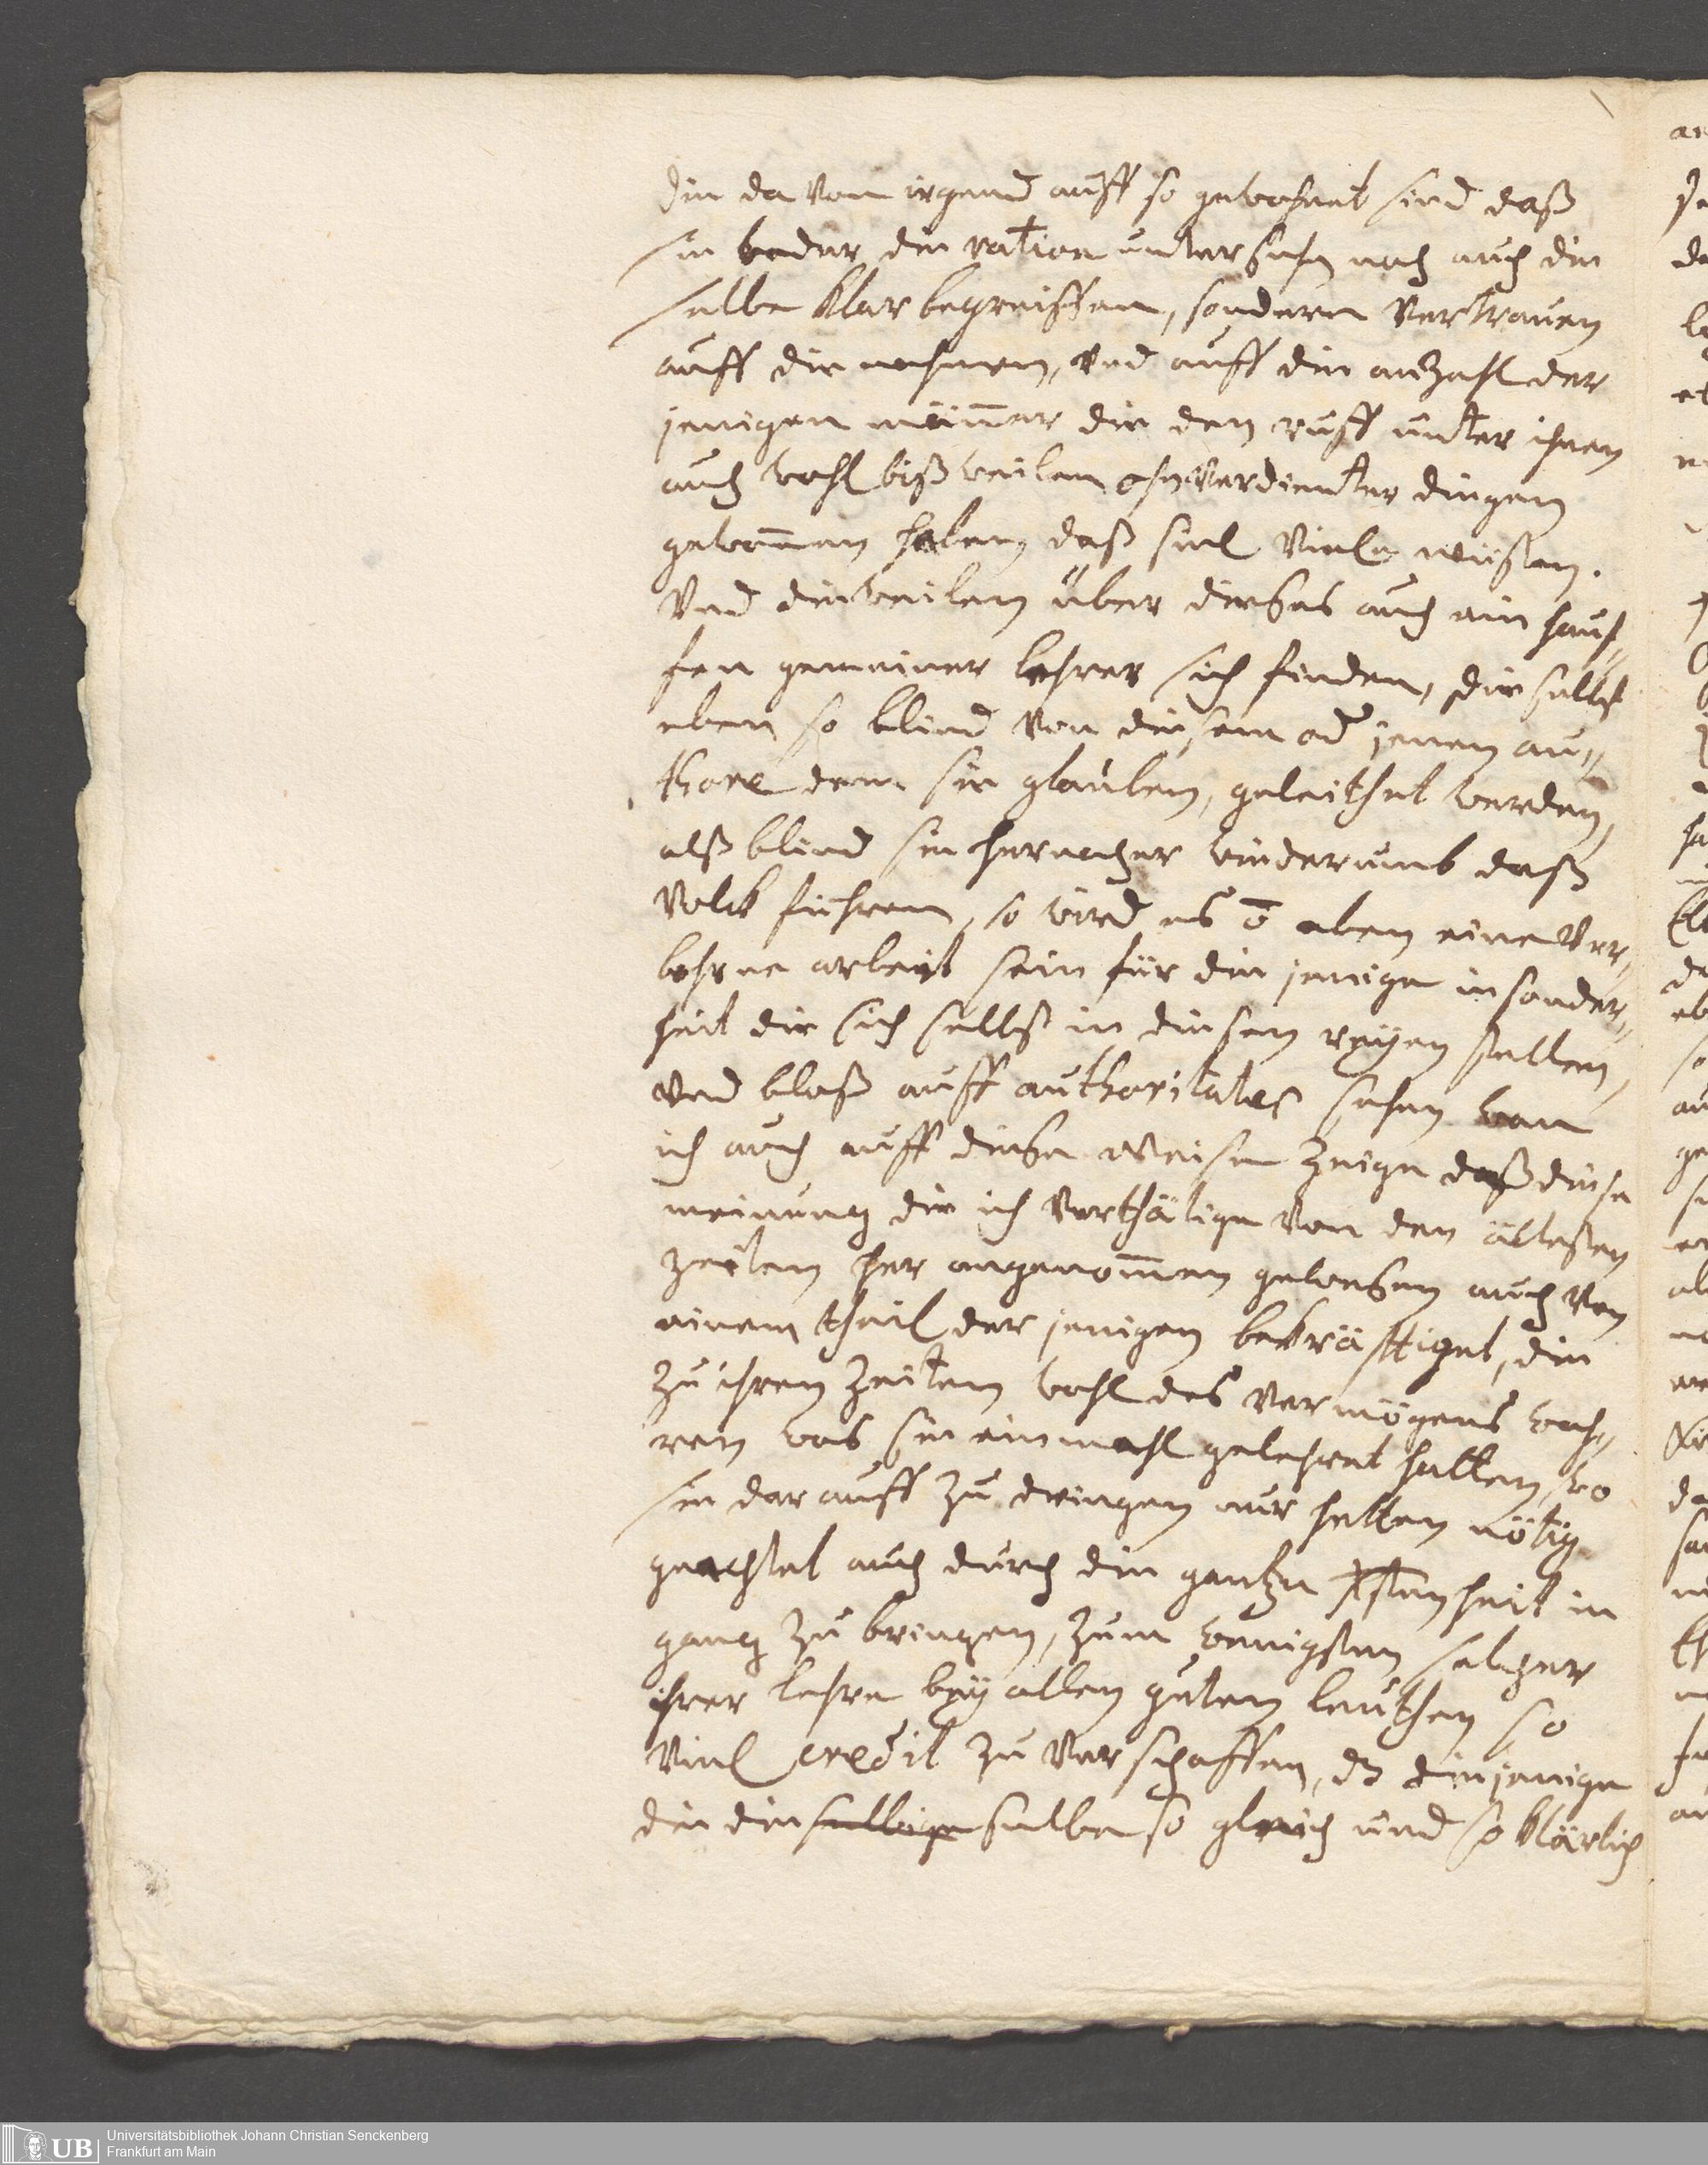 die da von irgend auff so gewohnet sind daß
sie weder die ration untersuchen noch auch die
selbe klar begreiffen, sondern vertrauen
auff die nahmen, und auff die anzahl der
jenigen männer die den ruff unter ihnen
auch wohl bißweilen ohnverdienter dingen
gewonnen haben daß sie viele wüsten.
Und dieweilen über dieses auch ein hauf„
fen gemeiner lehrer sich finden, die selbst
eben so blind von diesem od jenem au„
thore dem sie glauben, geleithet werden,
alß blind sie hernacher wiederumb daß
volck führen, so wird es ō eben eine ver„
lohrne arbeit sein für die jenige insonder„
heit die sich selbst in diesen reyen stellen,
und bloß auff authoritates sehen wan
ich auch auff diese weise zeige daß diese
meinung die ich verthätige von den ältesten
zeiten her angenom̄en gewesen auch von
einem theil der jenigen bekräfftiget, die
zu ihren zeiten wohl des vermögens wah„
ren was sie einmahl gelehret hatten, wo
sie darauff zu dringen nur hetten nötig
geachtet auch durch die gantze Xstenheit in
gang zu bringen, zum wenigsten solcher
ihrer lehre bey allen guten leuthen so
viel credit zu verschaffen, dz diejenige
die die selbige selbe so gleich und so klärlich
Universitätsbibliothek Johann Christian Senckenberg
Frankfurt am Main